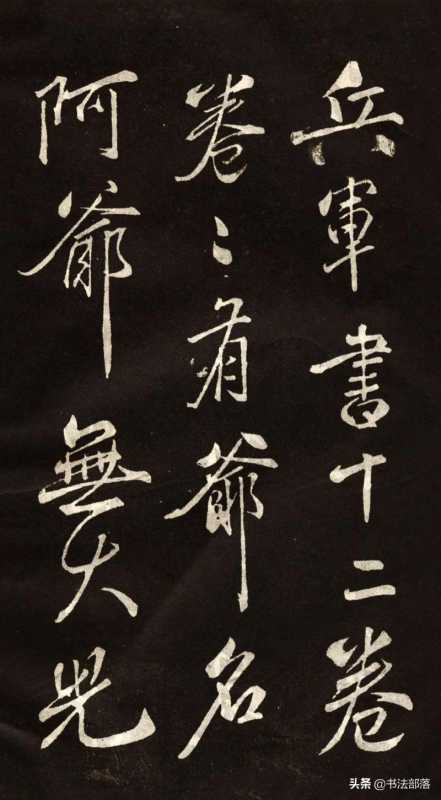 兵軍書十二卷
卷〻有爺名
阿爺無大兒
头条 @书法部落